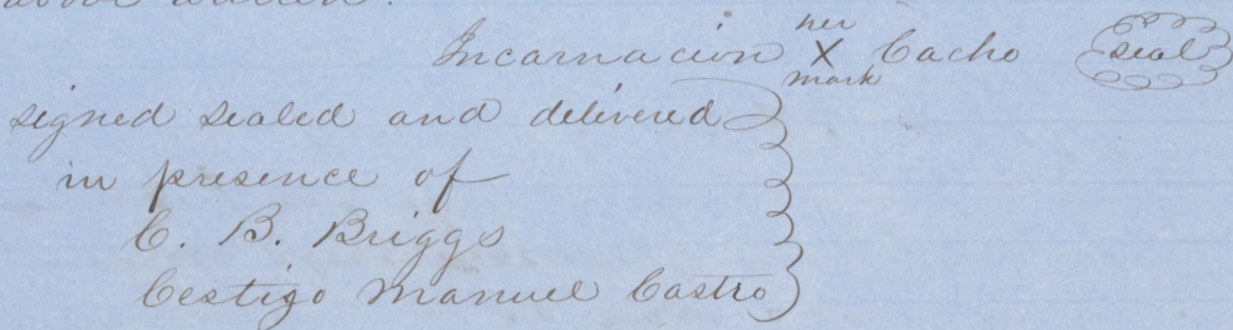 above written.
Incarnacion her X mark Cacho (seal)
signed sealed and delivered
in presence of
C. B. Briggs
Cestigo Manuel Castro